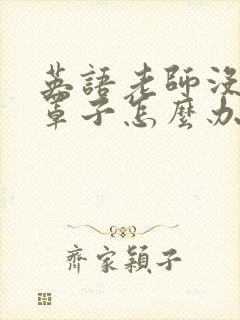 英語老師沒
罩子怎麼办
齊家穎子